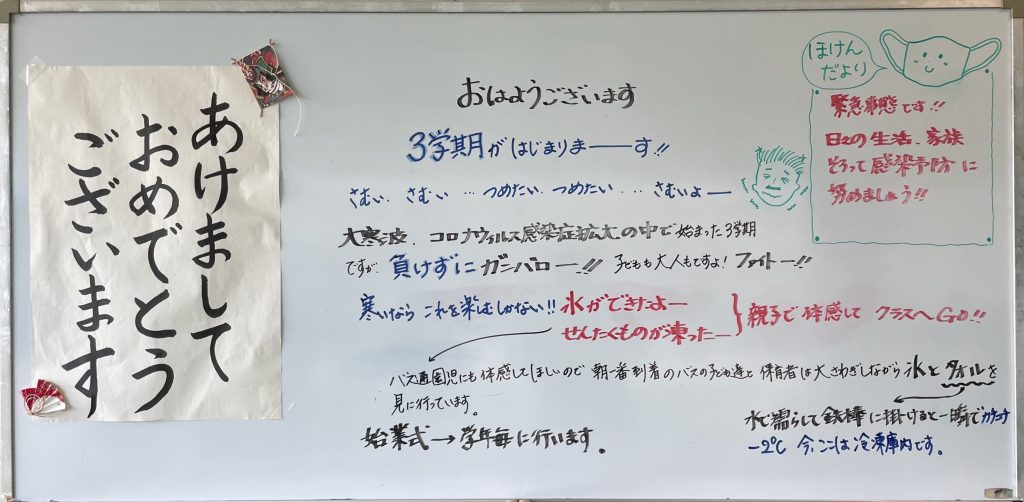 あけまして
おめでとう
ございます
おはようございます
3学期がはじまりまーーす!!
さむい、さむい…つめたい、つめたい…さむいよー
大寒波、コロナウィルス感染症拡大の中で始まった3学期
ですが、負けずにガンバロー!! 子どもも大人もですよ! ファイトー!!
寒いなら これを楽しむしかない!! 氷ができたよー
せんたくものが凍ったー
親子で体感して クラスへGO!!
バス通園児にも体感してほしいので 朝一番到着のバスの子ども達と保育者は大さわぎしながら氷とタオルを
見に行っています。
水で濡らして鉄棒に掛けると一瞬でカチコチ
-2℃ 今、ここは冷凍庫内です。
始業式→学年毎に行います。
ほけん
だより
緊急事態です!!
日々の生活、家族
そろって感染予防に
努めましょう!!